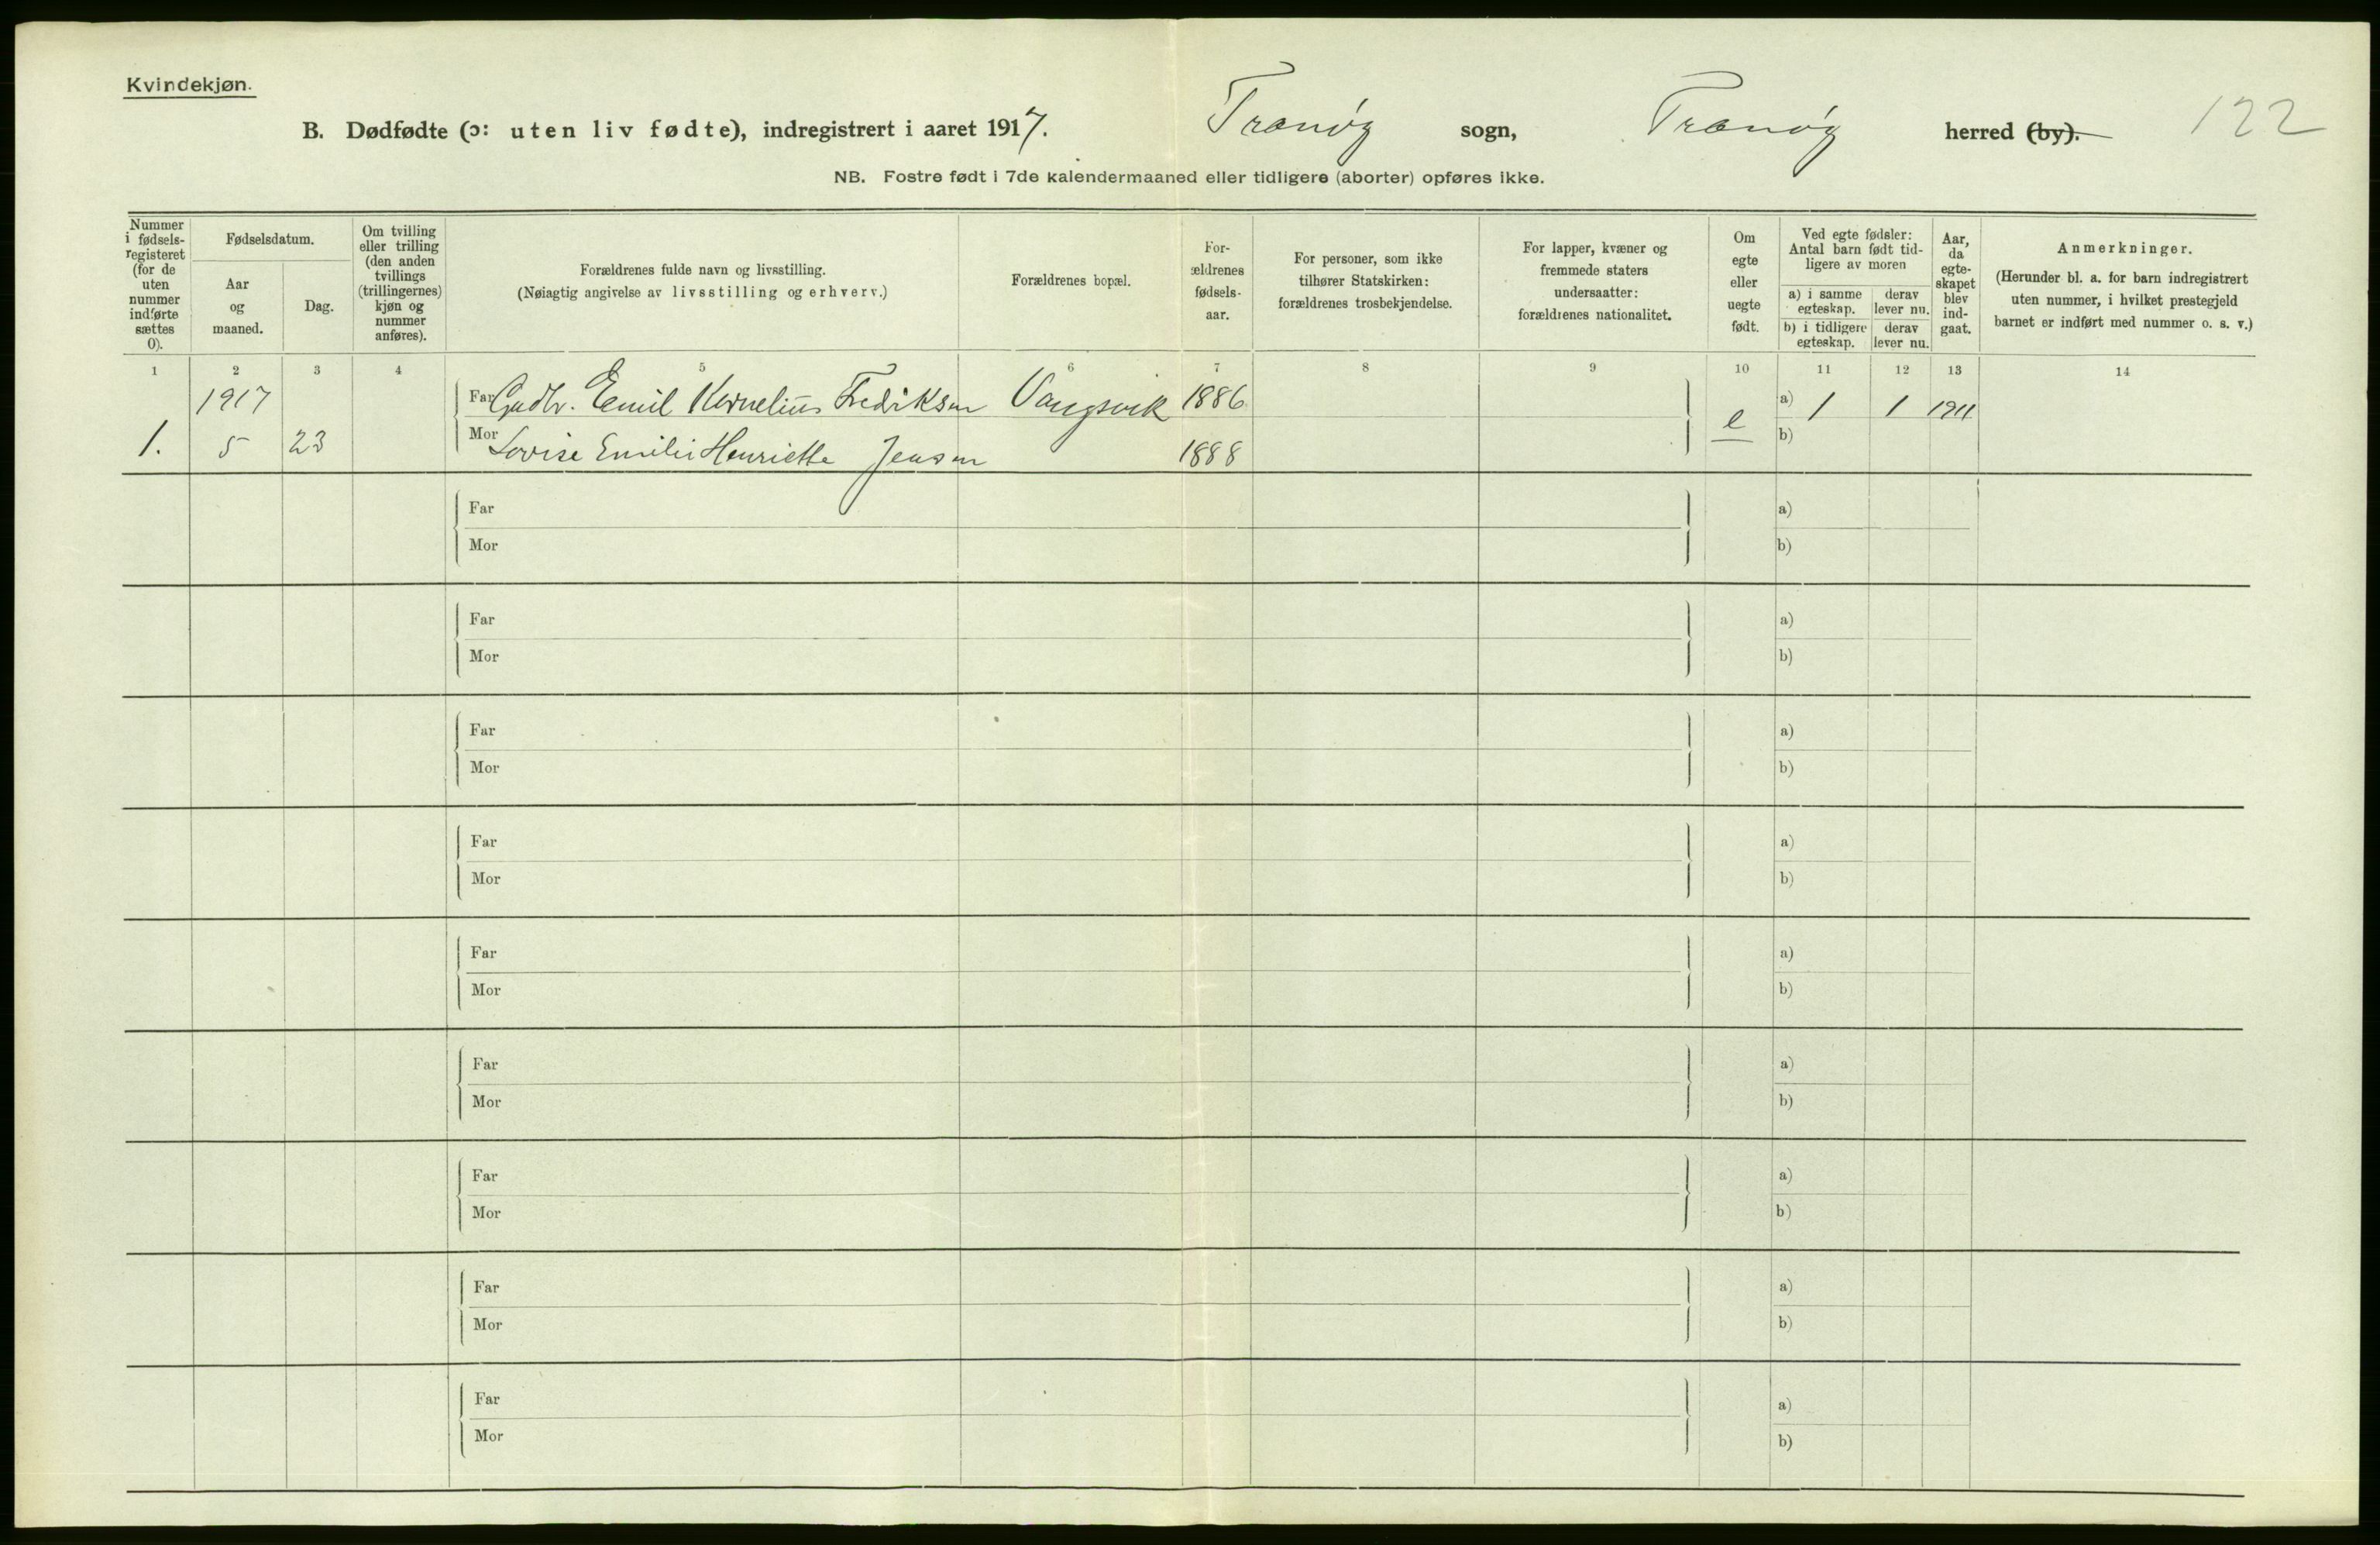 Kvindekjøn.
B. Dødfødte (ɔ: uten liv fødte), indregistrert i aaret 1917. Tranøy sogn, Tranøy herred (by). 122
NB. Fostre født i 7de kalendermaaned eller tidligere (aborter) opføres ikke.
Nummer i fødsels-registeret (for de uten nummer indførte sættes 0).
Fødselsdatum.
Aar og maaned.
Dag.
Om tvilling eller trilling (den anden tvillings (trillingernes) kjøn og nummer anføres).
Forældrenes fulde navn og livsstilling.
(Nøiagtig angivelse av livsstilling og erhverv.)
Forældrenes bopæl.
For-ældrenes fødsels-aar.
For personer, som ikke tilhører Statskirken: forældrenes trosbekjendelse.
For lapper, kvæner og fremmede staters undersaatter: forældrenes nationalitet.
Om egte eller uegte født.
Ved egte fødsler: Antal barn født tid-ligere av moren
a) i samme egteskap.
derav lever nu.
b) i tidligere egteskap.
derav lever nu.
Aar, da egte-skapet blev ind-gaat.
Anmerkninger.
(Herunder bl. a. for barn indregistrert uten nummer, i hvilket prestegjeld barnet er indført med nummer o. s. v.)
1 2 3 4 5 6 7 8 9 10 11 12 13 14
1917 Far Gadbr. Emil Kornelius Fredriksen Vangsvik 1886 e a) 1 1 1911
1. 5 23 Mor Lovise Emilie Henriette Jensen 1888 b)
Far a)
Mor b)
Far a)
Mor b)
Far a)
Mor b)
Far a)
Mor b)
Far a)
Mor b)
Far a)
Mor b)
Far a)
Mor b)
Far a)
Mor b)
Far a)
Mor b)